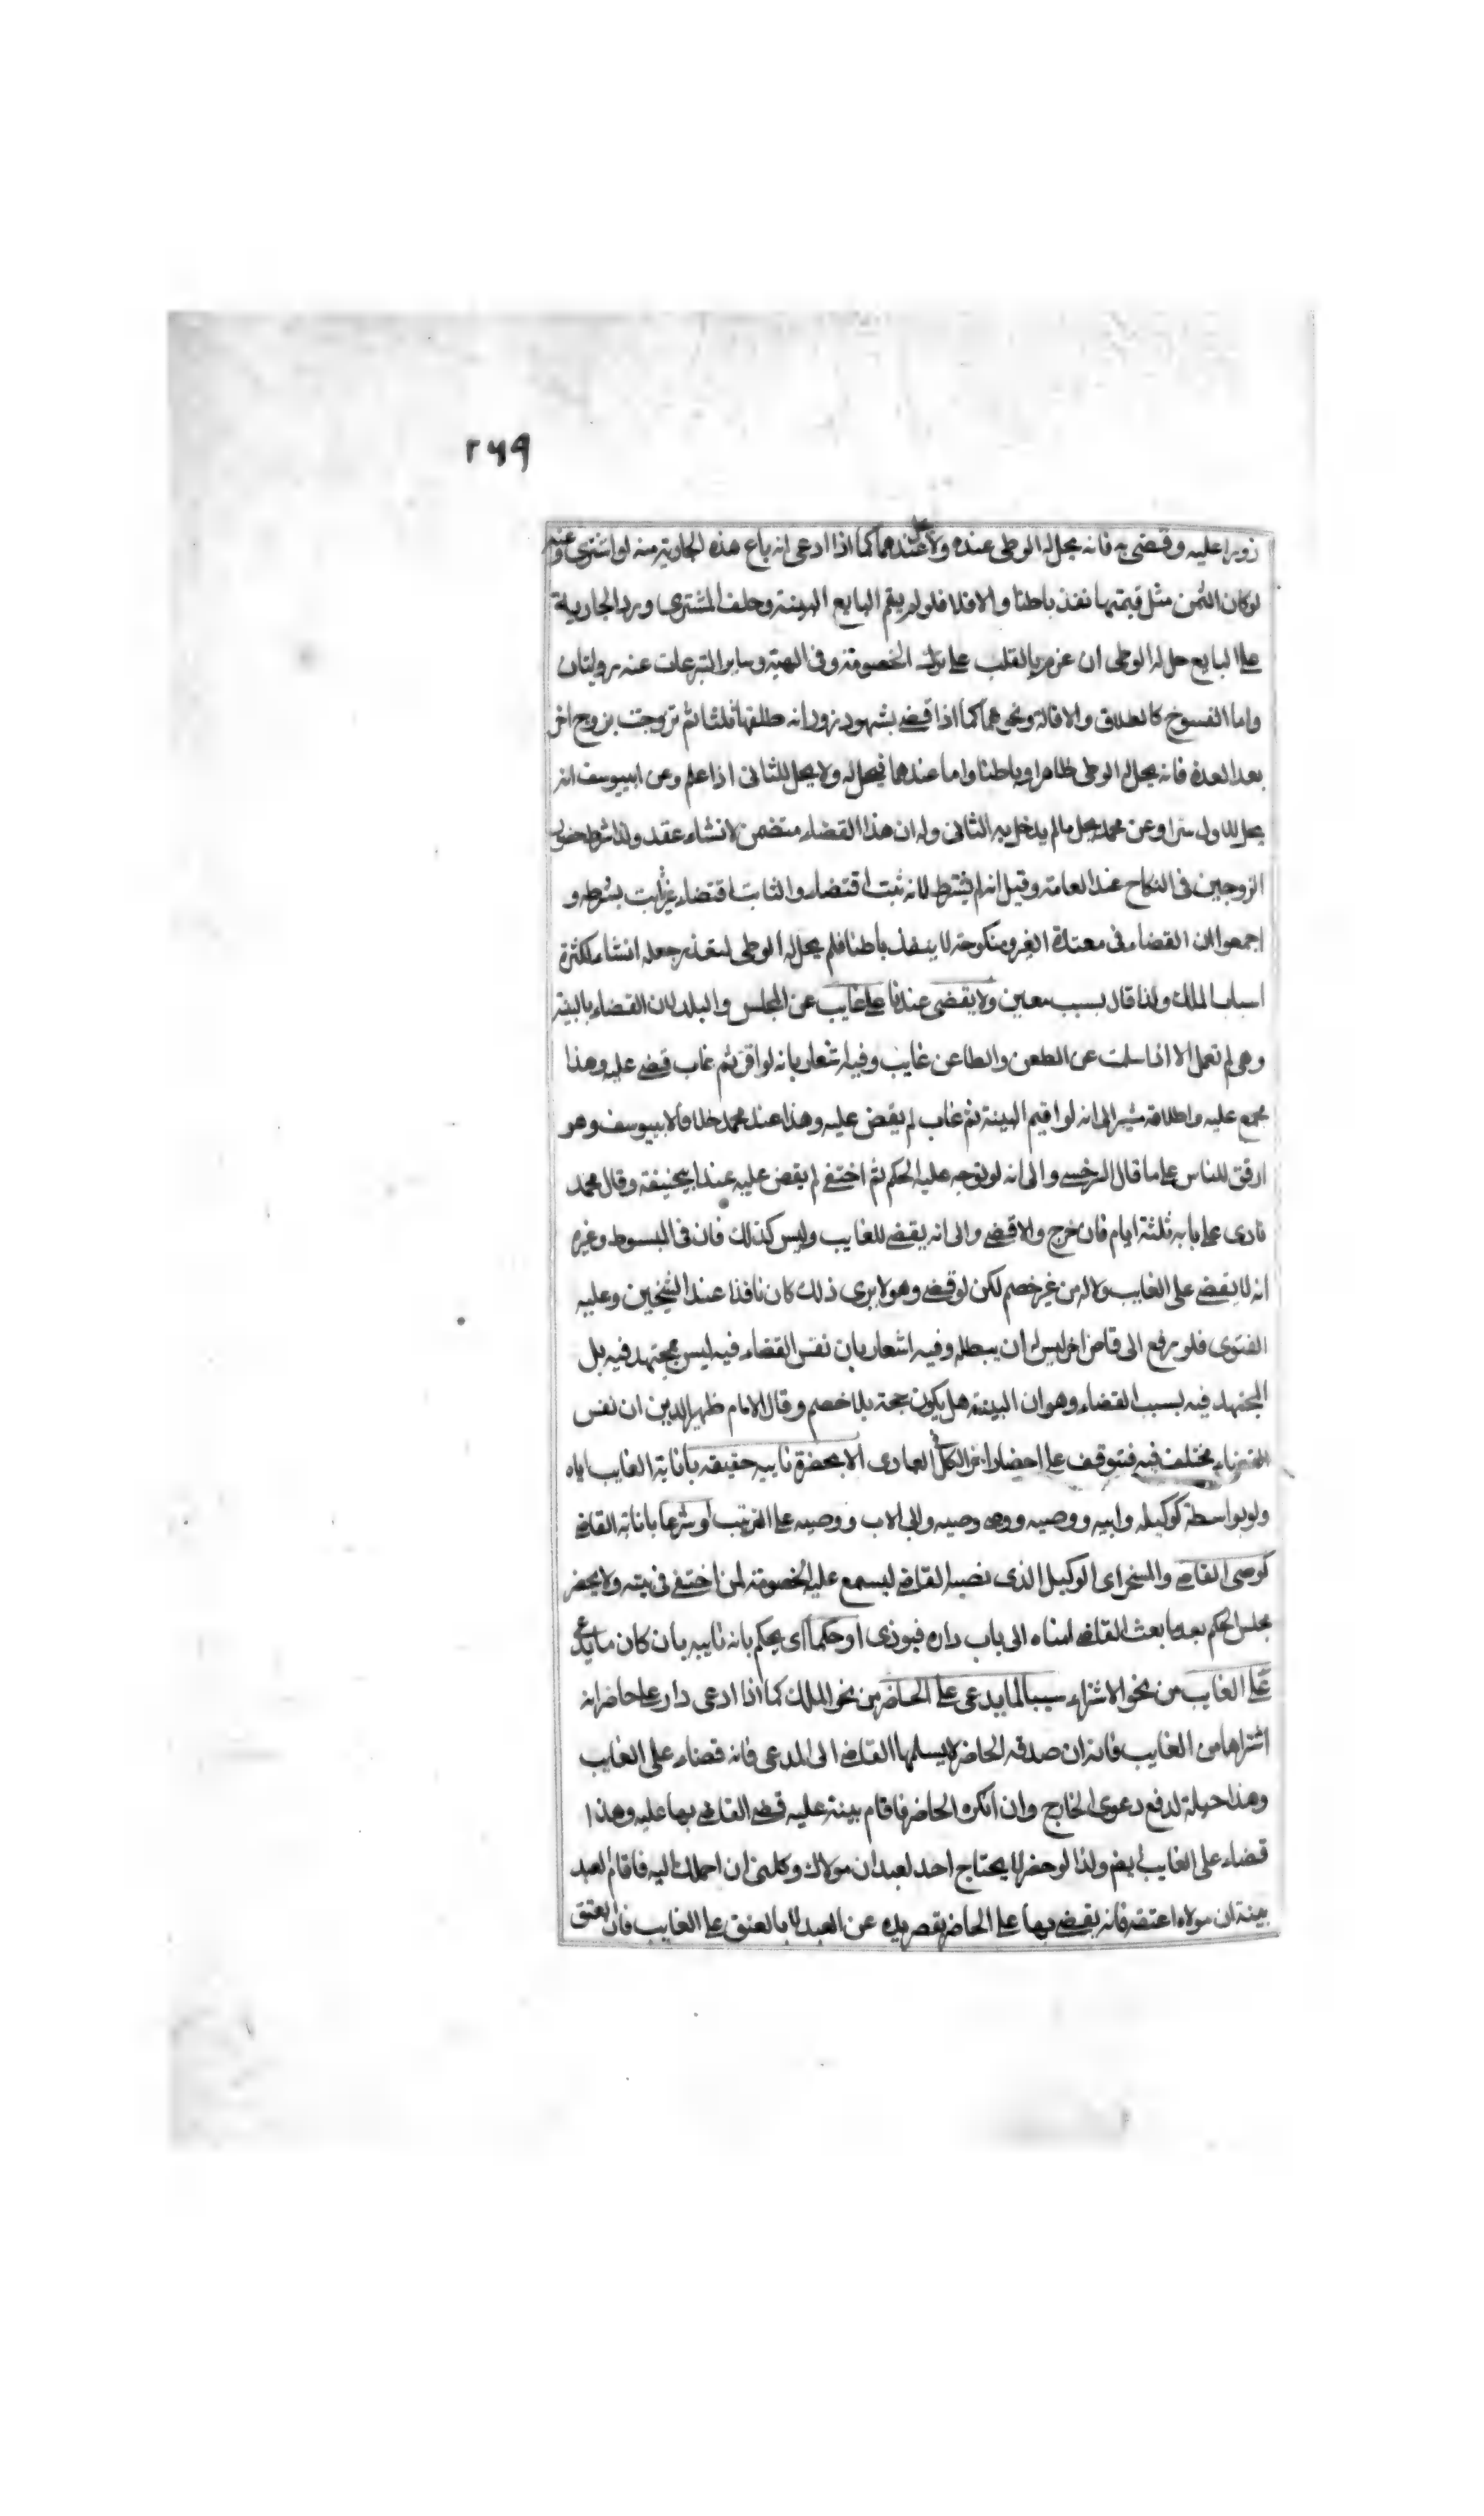 ٢٦٩
زورا عليه وقضى به فانه يحل له الوطى عنده ولا يحل عندهما كما اذا ادعى انه باع هذه الجارية منه لو اشترى وعنه
لو كان الثمن مثل قيمتها نفذ باطنا والا فلا فلو لم يقم البايع البينة وحلف المشترى ورد الجارية
على البايع حل له الوطى ان عزم بالقلب على ترك الخصومة وفى الهبة وساير التبرعات عنه روايتان
واما الفسوخ كالطلاق والاقالة ونحوهما كما اذا قضى بشهود زور انه طلقها ثلثا ثم تزوجت بزوج اخر
بعد العدة فانه يحل له الوطى ظاهرا وباطنا واما عندهما فيحل له ولا يحل للثانى اذا علم وعن ابيوسف انه
يحل للاول سرا وعن محمد يحل مالم يدخل به الثانى وله ان هذا القضاء متضمن لانشاء عقد ولذا شرط حضور
الزوجين فى النكاح عند العامة وقيل انه لم يشترط لانه ثبت اقتضاء والثابت اقتضاء غير ثابت بشرطه و
اجمعوا ان القضاء فى معتدة الغير ومنكوحته لا ينفذ باطنا فلم يحل له الوطى لتعذر جعله انشاء لكثرة
اسباب الملك ولذا قال بسبب معين ولا يقضى عندنا على غايب عن المجلس والبلد لان القضاء بالبينة
وهى لم تعمل الا اذا سلمت عن الطعن والطاعن غايب وفيه اشعار بانه لو اقر ثم غاب قضى عليه وهذا
مجمع عليه واطلاقه مشير الى انه لو اقيم البينة ثم غاب لم يقض عليه وهذا عند محمد خلافا لابيوسف وهو
ارفق للناس على ما قال السرخسى والى انه لو توجه عليه الحكم ثم اختفى لم يقض عليه عند ابيحنيفة وقال محمد
نادى على بابه ثلثة ايام فان خرج والا قضى والى انه يقضى للغايب وليس كذلك فان فى المبسوط وغيره
انه لا يقضى على الغايب ولا له من غير خصم لكن لو قضى وهو لا يرى ذلك كان نافذا عند الشيخين وعليه
الفتوى فلو رفع الى قاض اخر ليس له ان يبطله وفيه اشعار بان نفس القضاء فيه ليس بمجتهد فيه بل
المجتهد فيه بسبب القضاء وهو ان البينة هل يكون حجة بلا خصم وقال الامام ظهير الدين ان نفس
القضاء مختلف فيه فتوقف على احضار اخر الكل فى العمادى الا بحضرة نايبه حقيقة بانابة الغايب اياه
ولو بواسطة كوكيله وابيه ووصيه ووصى وصيه وابى الاب ووصيه على الترتيب او شرعا بانابة القاضى
كوصى القاضى والمسخر اى الوكيل الذى نصبه القاضى ليسمع عليه الخصومة لمن اختفى فى بيته ولا يحضر
مجلس الحكم بعد ما بعث القاضى امناه الى باب داره فنودى او حكما اى يحكم بانه نايبه بان كان ما يدعى
على الغايب من نحو الاشتراء سببا لما يدعى على الحاضر من نحو الملك كما اذا ادعى دارا على حاضر انه
اشتراها من الغايب فانه ان صدقه الحاضر لا يسلمها القاضى الى المدعى فانه قضاء على الغايب
وهذا حيلة لدفع دعوى الخارج وان انكره الحاضر فاقام بينة عليه قضى القاضى بها عليه وهذا
قضاء على الغايب ايضا ولذا لو حضر لا يحتاج احد لعبد ان مولاك وكلنى ان احملك اليه فاقام العبد
بينة ان مولاه اعتقه فانه يقضى بها على الحاضر بقصر يده عن العبد لا بالعتق على الغايب فان العتق